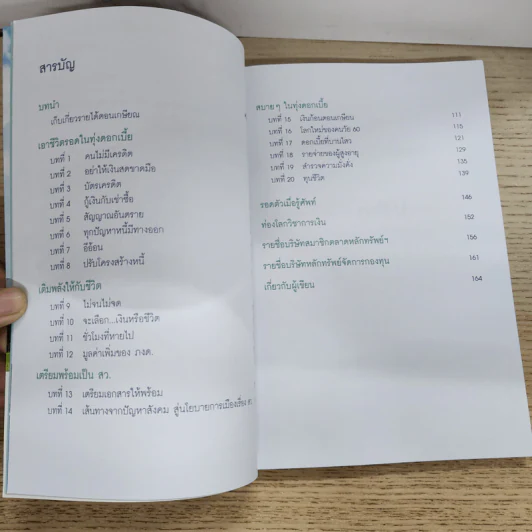 สารบัญ
บทนำ
เก็บเกี่ยวรายได้ตอนเกษียณ
เอาชีวิตรอดในทุ่งดอกเบี้ย
บทที่ 1 คนไม่มีเครดิต
บทที่ 2 อย่าให้เงินสดขาดมือ
บทที่ 3 บัตรเครดิต
บทที่ 4 กู้เงินกับเช่าซื้อ
บทที่ 5 สัญญาณอันตราย
บทที่ 6 ทุกปัญหาหนี้มีทางออก
บทที่ 7 อีอ้อน
บทที่ 8 ปรับโครงสร้างหนี้
เติมพลังให้กับชีวิต
บทที่ 9 ไม่จนไม่จด
บทที่ 10 จะเลือก...เงินหรือชีวิต
บทที่ 11 ชั่วโมงที่หายไป
บทที่ 12 มูลค่าเพิ่มของ ภงด.
เตรียมพร้อมเป็น สว.
บทที่ 13 เตรียมเอกสารให้พร้อม
บทที่ 14 เส้นทางจากปัญหาสังคม สู่นโยบายการเมืองเรื่อง
สบาย ๆ ในทุ่งดอกเบี้ย
บทที่ 15 เงินก้อนตอนเกษียน 111
บทที่ 16 โลกใหม่ของคนวัย 60 115
บทที่ 17 ดอกเบี้ยที่บานโตว 121
บทที่ 18 รายจ่ายของผู้สูงอายุ 129
บทที่ 19 สำรวจความมั่งคั่ง 135
บทที่ 20 ทุนชีวิต 139
รอดตัวเมื่อรู้ศัพท์ 146
ท่องโลกวิชาการเงิน 152
รายชื่อบริษัทสมาชิกตลาดหลักทรัพย์ฯ 156
รายชื่อบริษัทหลักทรัพย์จัดการกองทุน 161
เกี่ยวกับผู้เขียน 164